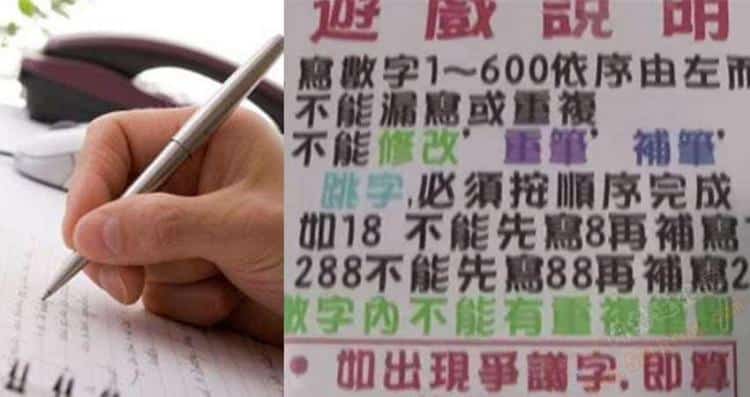 遊戲説明
寫數字1～600依序由左而
不能漏寫或重複
不能修改，重筆，補筆，
跳字，必須按順序完成
如18 不能先寫8再補寫
288不能先寫88再補寫2
數字內不能有重複筆劃
• 如出現爭議字，即算